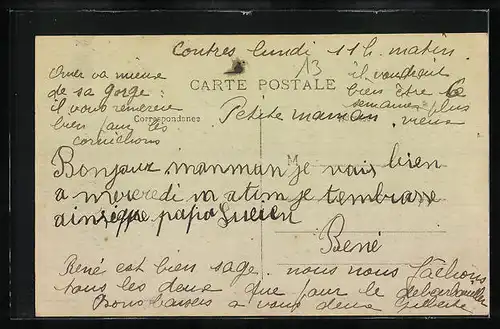 Contres lundi 11 h. matin
13
Omer va mieux
de sa gorge :
il vous remercie
bien pour les
cornichons
il voudrait
bien être
semaine plus
vieux
CARTE POSTALE
Correspondance
Petite maman
M
Bonjour manman je vais bien
a mercredi va
je tembrasse
ainsi que papa Lucien
René
René est bien sage. nous nous fâchons
tous les deux que pour le débarbouiller
Bons baisers a vous deux Gilberte